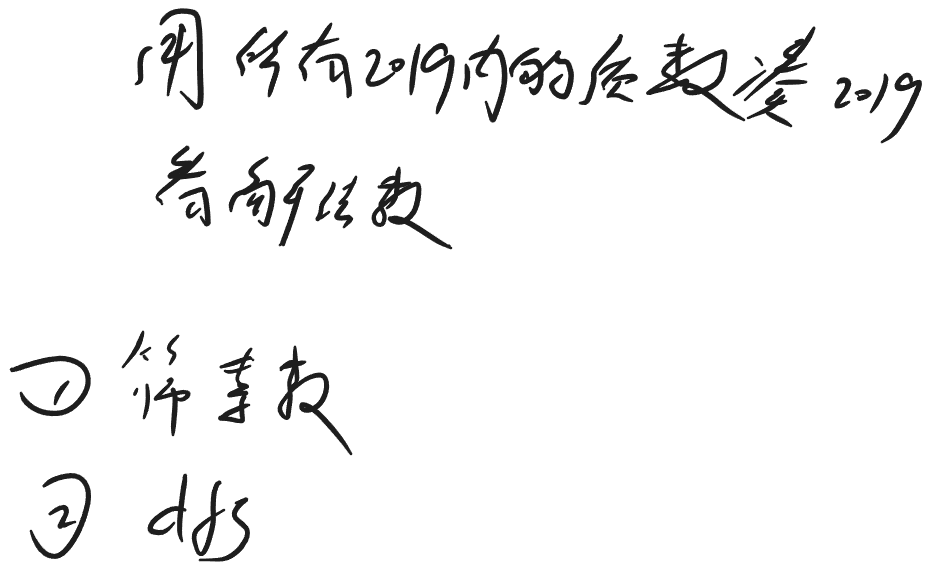 用所有2019内的质数凑2019
看有解法数
① 筛素数
② dfs